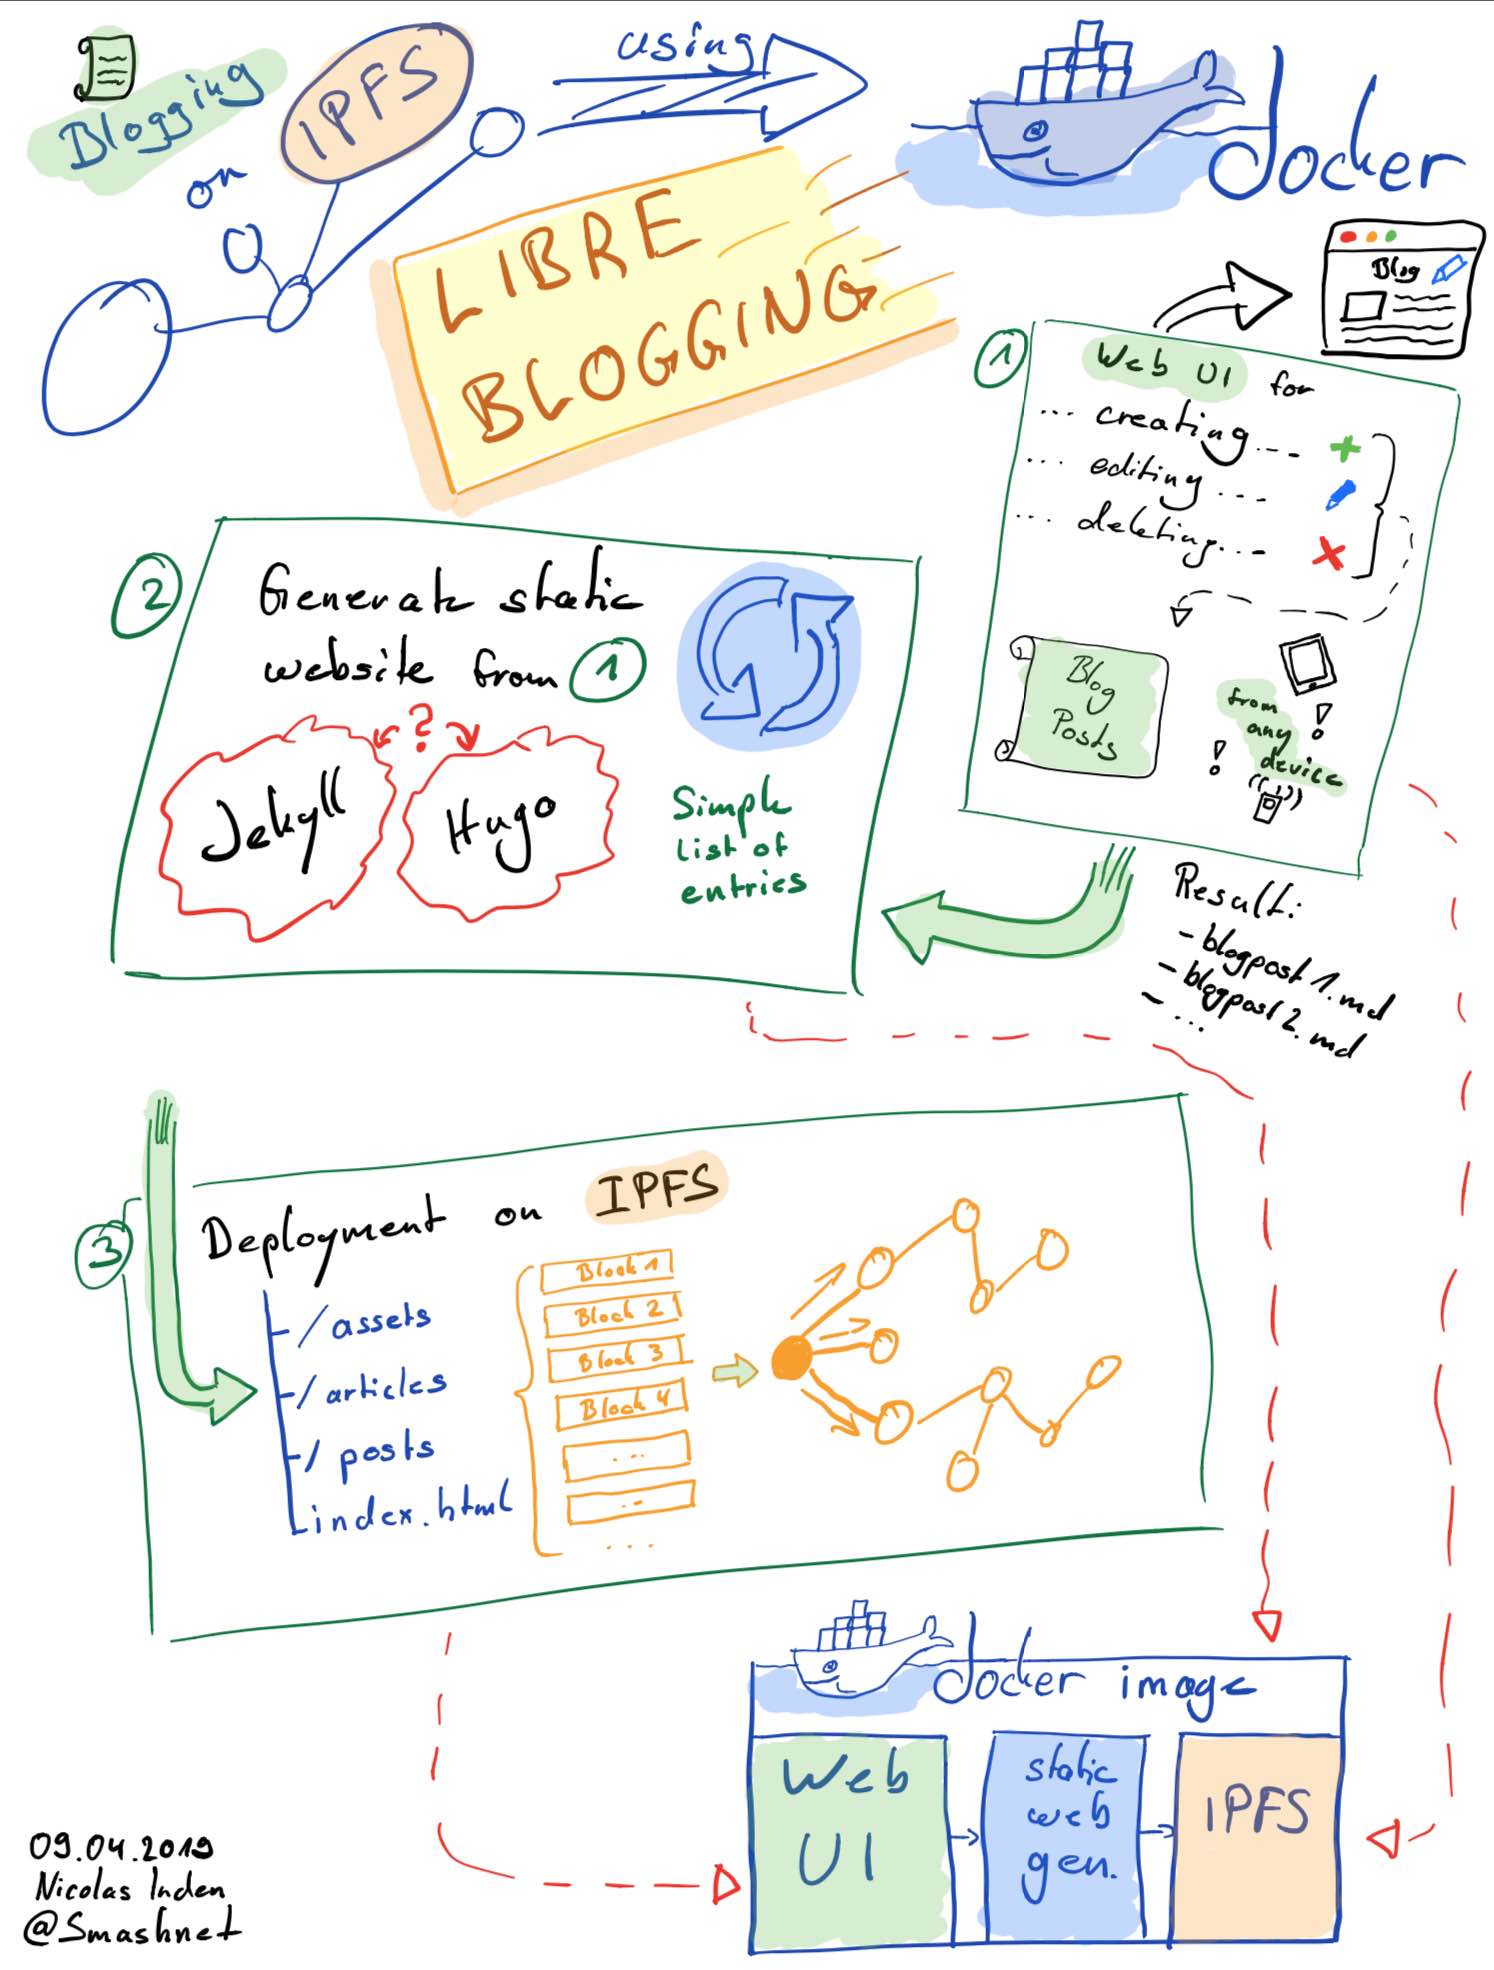 Blogging
on
IPFS
using
docker
LIBRE
BLOGGING
Blog
1
Web UI for
... creating ...
... editing ...
... deleting ...
Blog
Posts
from
any
device
! !
Result:
- blogpost1.md
- blogpost2.md
- ...
2
Generate static
website from 1
?
Jekyll
Hugo
Simple
list of
entries
3
Deployment on IPFS
/assets
/articles
/posts
index.html
Block 1
Block 2
Block 3
Block 4
...
...
....
docker image
Web
UI
static
web
gen.
IPFS
09.04.2019
Nicolas Inden
@Smashnet